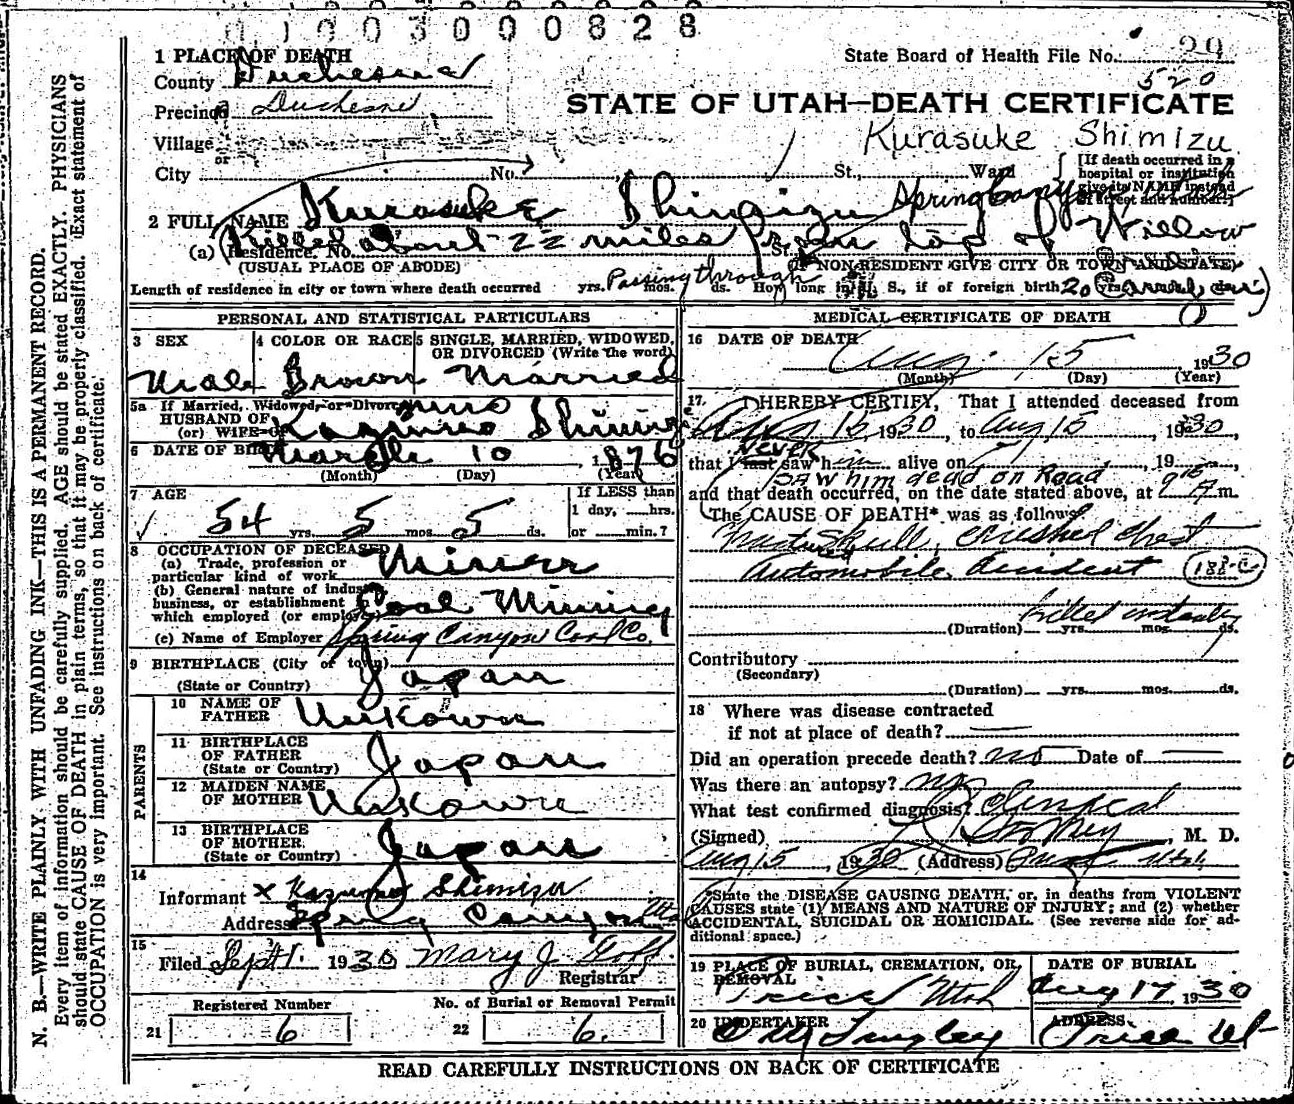 0 1 0 0 3 0 0 0 8 2 8
1 PLACE OF DEATH
State Board of Health File No. 29
County Duchesne
520
Precinct Duchesne
STATE OF UTAH—DEATH CERTIFICATE
Village
Kurasuke Shimizu
or
City No. St., Ward
[If death occurred in a hospital or institution give its NAME instead of street and number.]
Spring Canyon Utah
2 FULL NAME Kurasuke Shimizu
(a) Residence. No. St.
Killed about 22 miles from top of Willow
(USUAL PLACE OF ABODE) (IF NON-RESIDENT GIVE CITY OR TOWN AND STATE)
Length of residence in city or town where death occurred yrs. mos. ds. How long in U. S., if of foreign birth 20 yrs. mos. ds.
Passing through
PERSONAL AND STATISTICAL PARTICULARS
3 SEX
4 COLOR OR RACE
5 SINGLE, MARRIED, WIDOWED, OR DIVORCED (Write the word)
Male Brown Married
5a If Married, Widowed, or Divorced
HUSBAND OF
(or) WIFE OF
Shimizu
6 DATE OF BIRTH March 10, 1876
(Month) (Day) (Year)
7 AGE
If LESS than
1 day, hrs.
54 yrs. 5 mos. 5 ds. or min.?
8 OCCUPATION OF DECEASED
(a) Trade, profession or
particular kind of work Miner
(b) General nature of industry,
business, or establishment in
which employed (or employer) Coal Mining
(c) Name of Employer Spring Canyon Coal Co.
9 BIRTHPLACE (City or town)
(State or Country) Japan
PARENTS
10 NAME OF
FATHER Unkown
11 BIRTHPLACE
OF FATHER
(State or Country) Japan
12 MAIDEN NAME
OF MOTHER Unkown
13 BIRTHPLACE
OF MOTHER.
(State or Country) Japan
14
Informant x Shimizu
Address Spring Canyon Utah
15
Filed Sept 1. 1930 Mary J
Registrar
Registered Number
21 6
No. of Burial or Removal Permit
22 6.
MEDICAL CERTIFICATE OF DEATH
16 DATE OF DEATH
Aug. 15 1930
(Month) (Day) (Year)
17. I HEREBY CERTIFY, That I attended deceased from
Aug 15, 1930, to Aug 15, 1930,
never
that I last saw him alive on , 19 ,
saw him dead on Road
and that death occurred, on the date stated above, at 9 15 A m.
The CAUSE OF DEATH* was as follows:
Skull, crushed chest
Automobile Accident 188-c
Killed instantly
(Duration) yrs. mos. ds.
Contributory
(Secondary)
(Duration) yrs. mos. ds.
18 Where was disease contracted
if not at place of death?
Did an operation precede death? no Date of
Was there an autopsy? no
What test confirmed diagnosis? clinical
(Signed) , M. D.
Aug 15, 1930 (Address) Utah
*State the DISEASE CAUSING DEATH, or, in deaths from VIOLENT
CAUSES state (1) MEANS AND NATURE OF INJURY; and (2) whether
ACCIDENTAL, SUICIDAL OR HOMICIDAL. (See reverse side for ad-
ditional space.)
19 PLACE OF BURIAL, CREMATION, OR
REMOVAL
Price Utah
DATE OF BURIAL
Aug 17 1930
20 UNDERTAKER
ADDRESS
Price Ut
READ CAREFULLY INSTRUCTIONS ON BACK OF CERTIFICATE
N. B.—WRITE PLAINLY, WITH UNFADING INK—THIS IS A PERMANENT RECORD.
Every item of information should be carefully supplied. AGE should be stated EXACTLY. PHYSICIANS
should state CAUSE OF DEATH in plain terms, so that it may be properly classified. Exact statement of
OCCUPATION is very important. See instructions on back of certificate.